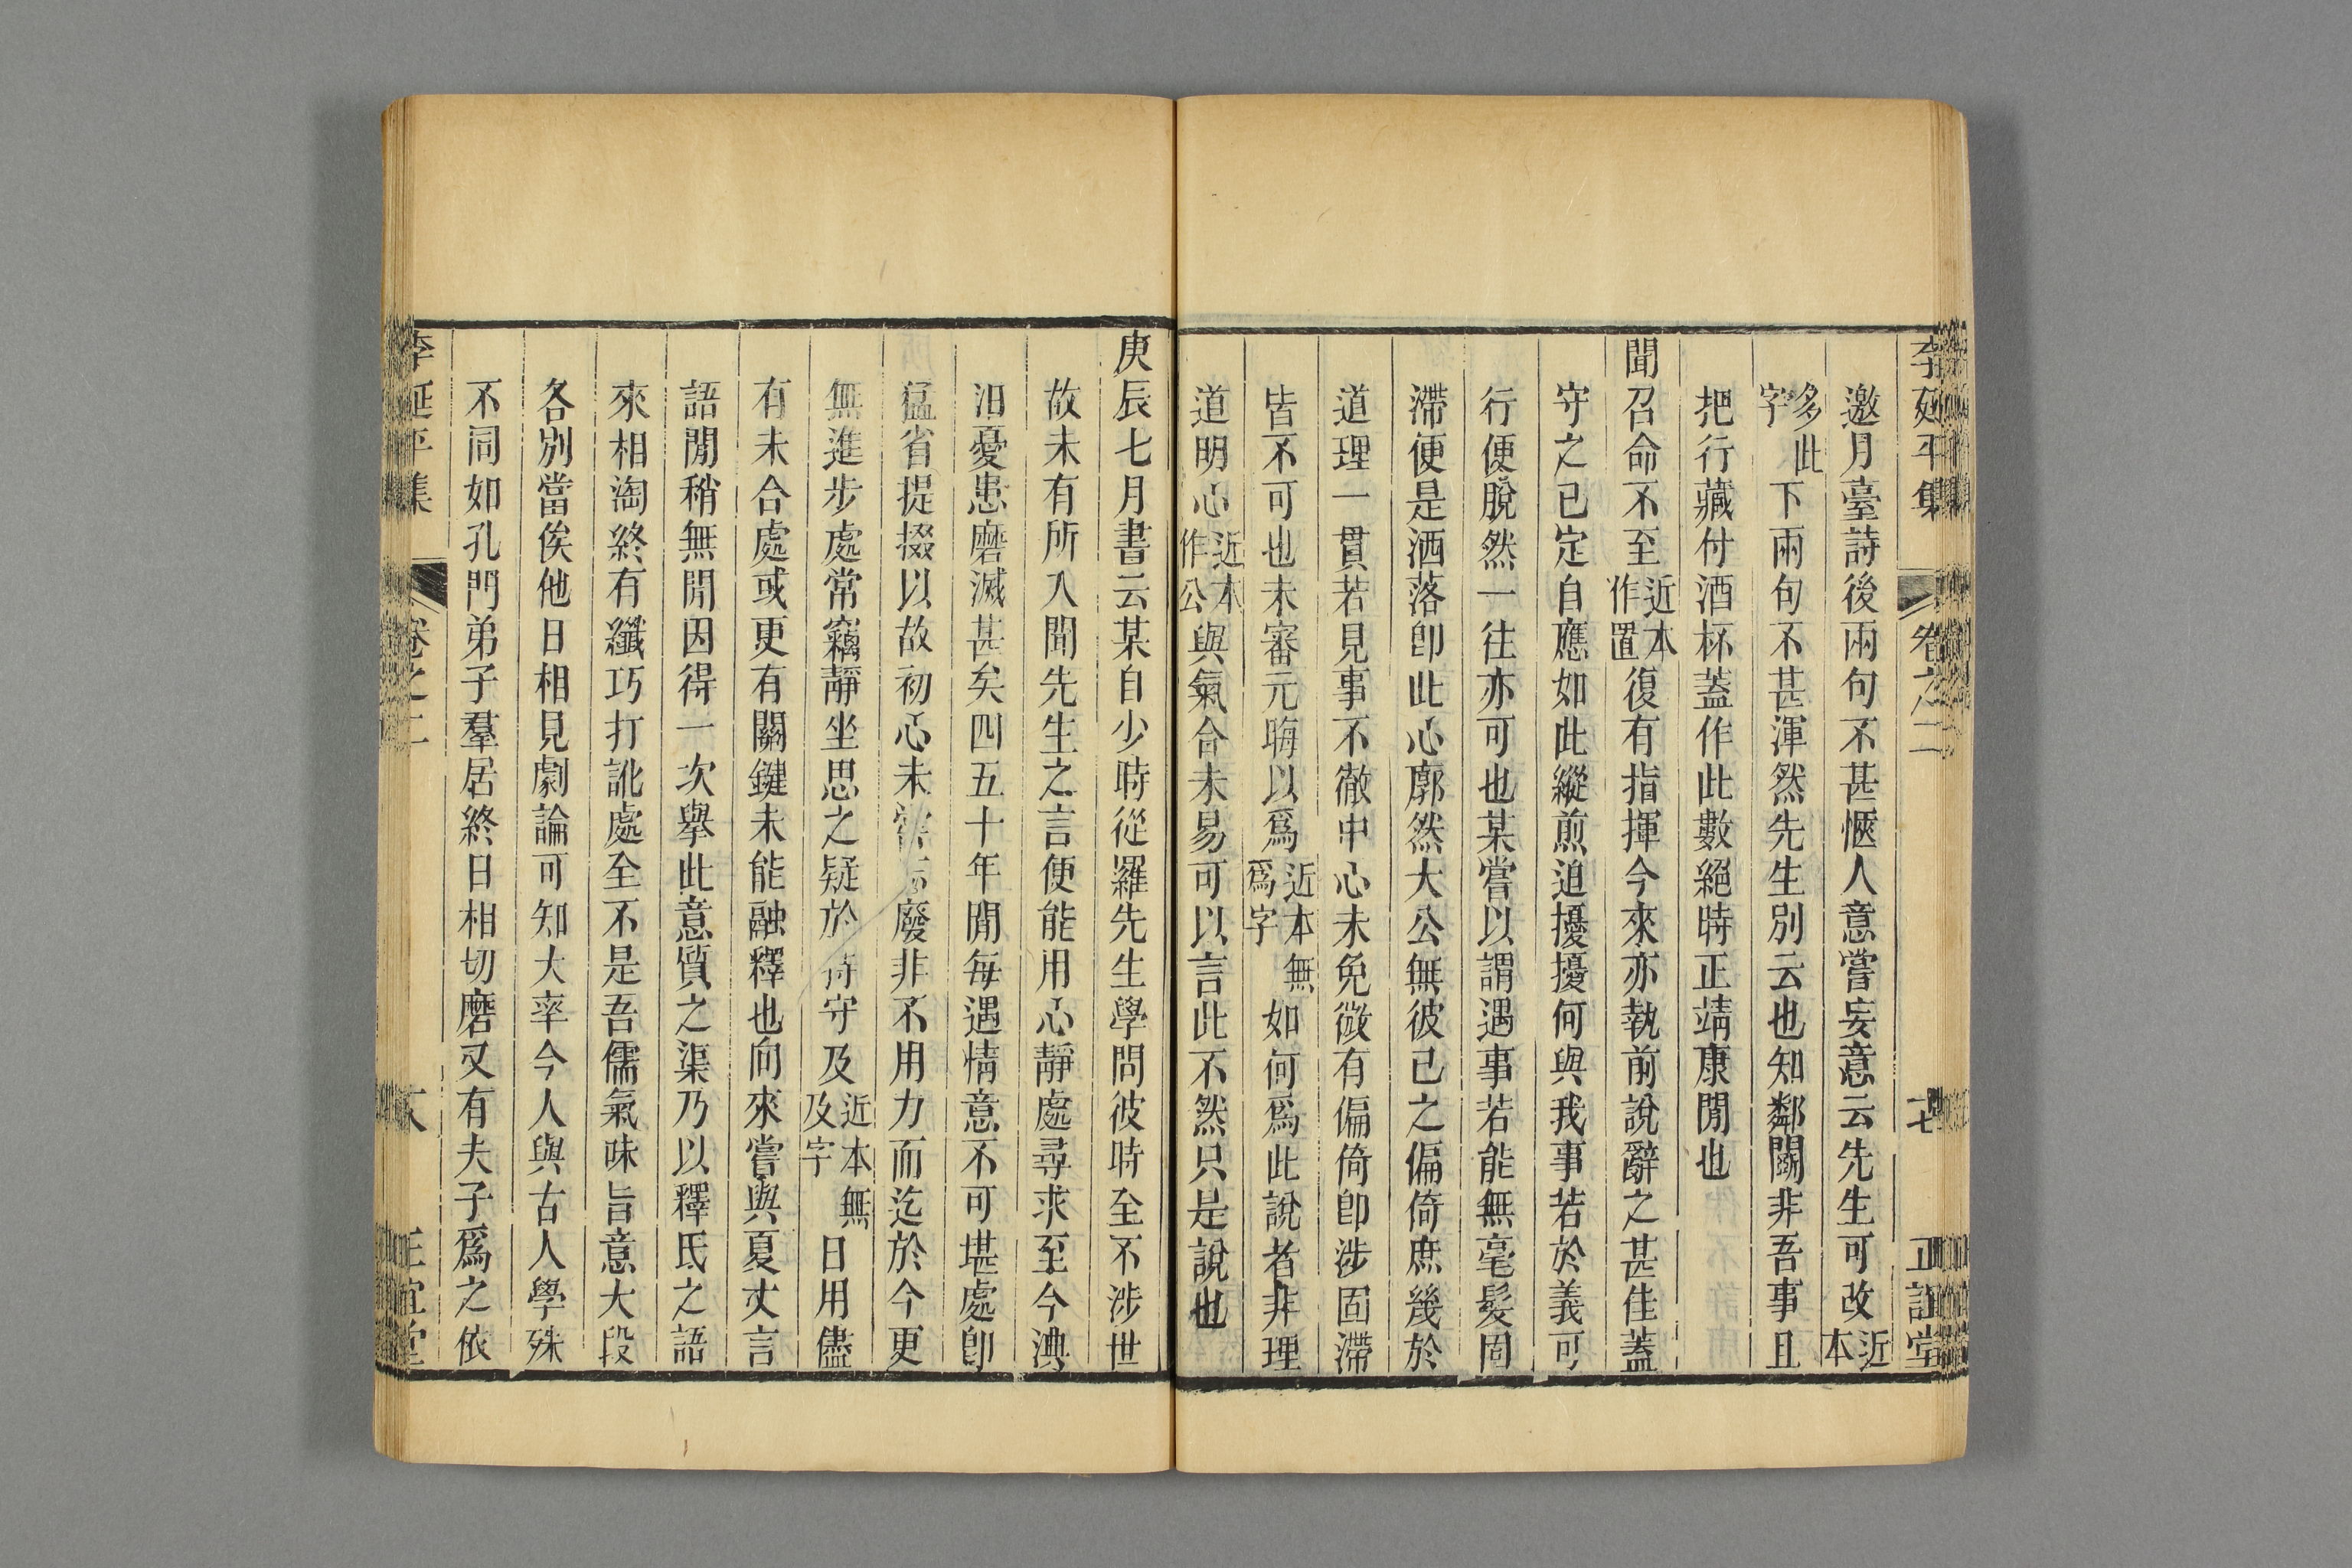 李延平集 卷之二 十七 正誼堂
邀月臺詩後兩句不甚愜人意嘗妄意云先生可改近本
多此字下兩句不甚渾然先生別云也知鄰鬭非吾事且
把行藏付酒杯蓋作此數絕時正靖康閒也
聞召命不至近本作置復有指揮今來亦執前說辭之甚佳蓋
守之已定自應如此縱煎迫擾擾何與我事若於義可
行便脫然一往亦可也某嘗以謂遇事若能無毫髮固
滯便是洒落卽此心廓然大公無彼己之偏倚庶幾於
道理一貫若見事不徹中心未免微有偏倚卽涉固滯
皆不可也未審元晦以爲近本無爲字如何爲此說者非理
道明心近本作公與氣合未易可以言此不然只是說也
庚辰七月書云某自少時從羅先生學問彼時至不涉世
故未有所入聞先生之言便能用心靜處尋求至今淟
汨憂患磨滅甚矣四五十年閒每遇情意不可堪處卽
猛省提掇以故初心未嘗廢非不用力而迄於今更
無進步處常竊靜坐思之疑於持守及近本無及字日用儘
有未合處或更有關鍵未能融釋也向來嘗與夏丈言
語閒稍無閒因得一次舉此意質之渠乃以釋氏之語
來相淘終有纖巧打訛處全不是吾儒氣味旨意大段
各別當俟他日相見劇論可知大率今人與古人學殊
不同如孔門弟子羣居終日相切磨又有夫子爲之依
李延平集 卷之二 正誼堂